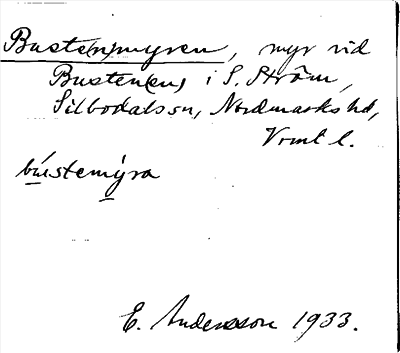 Busten(n)myren, myr vid
Busten(en) i S. Ström,
Silbodalssn, Nordmarks hd,
Vrml l.
bústemýra
E. Andersson 1933.